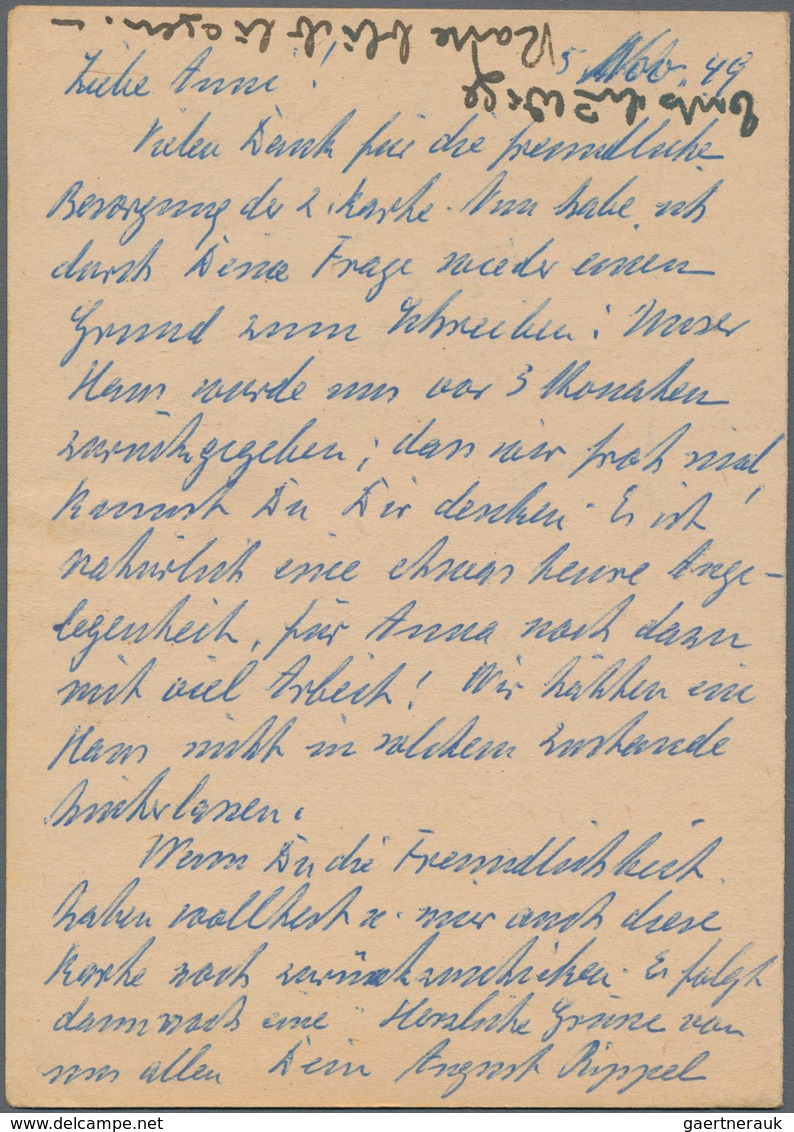 5. Nov. 49
Liebe Anni!
Vielen Dank für die freundliche
Besorgung der 2. Karte. Nun habe ich
durch Deine Frage wieder einen
Grund zum Schreiben: Unser
Haus wurde uns vor 3 Monaten
zurückgegeben; dass wir froh sind,
kannst Du Dir denken. Es ist
natürlich eine etwas teure Ange-
legenheit, für Anna noch dazu
mit viel Arbeit! Wir hätten ein
Haus nicht in solchem Zustande
hinterlassen.
Wenn Du die Freundlichkeit
haben wolltest u. mir auch diese
Karte noch zurückzuschicken. Es folgt
dann noch eine. Herzliche Grüsse von
uns allen Dein August Rippel
Karte blieb liegen. –
gaertnerauk